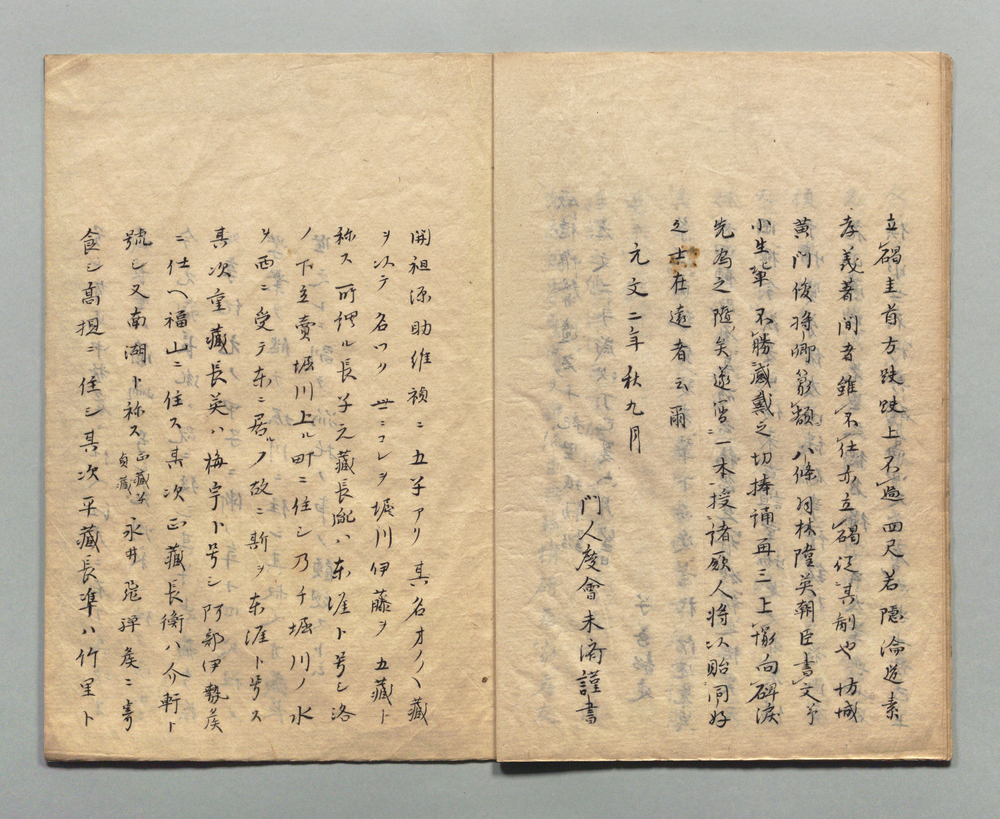 立碣圭首方趺趺上不過四尺若隠淪道素
孝義著聞者雖不仕亦立碣從其制也坊城
黄門俊将卿篆額八條羽林隆英朝臣書文予
小生輩不勝感戴之切捧誦再三上壠向碑涙
先為之隨矣遂寫一本授諸願人将以貽同好
之士在遠者云爾
元文二年秋九月
門人度會末済謹書
開祖源助維禎ニ五子アリ其名オノヽ藏
ヲ以テ名ツク世ニコレヲ堀川伊藤ヲ五藏ト
称ス所謂ル長子元藏長胤ハ東涯ト号シ洛
ノ下立賣堀川上ル町ニ住シ乃チ堀川ノ水
ヲ西ニ受テ東ニ居ルノ故ニ斯ヲ東涯ト号ス
其次重藏長英ハ梅宇ト号シ阿部伊勢矦
ニ仕ヘ福山ニ住ス其次正藏長衡ハ介軒ト
號シ又南湖ト称ス正藏羊貞藏永井飛騨矦ニ寄
食シ高槻ニ住シ其次平藏長準ハ竹里ト